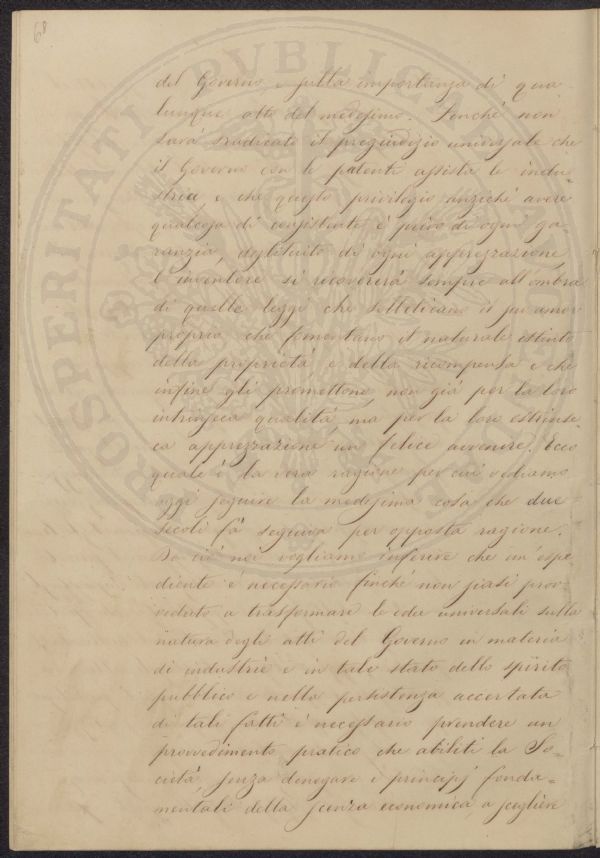 68
del Governo e sulla importanza di qua-
lunque atto del medesimo. Finchè non
sarà sradicato il pregiudizio universale che
il Governo con le patenti assista le indu-
strie, e che questo privilegio anzichè avere
qualcosa di consistente è privo di ogni ga-
ranzia, destituito di ogni apprezzazione,
l'inventore si ricovererà sempre all'ombra
di quelle leggi che solleticano il suo amor
proprio che fomentano il naturale istinto
della proprietà e della ricompensa e che
infine gli promettono, non già per la loro
intrinseca qualità, ma per la loro estrinse-
ca apprezzazione un felice avvenire. Ecco
quale è la vera ragione per cui vediamo
oggi seguire la medesima cosa che due
secoli fà seguiva per opposta ragione.
Da ciò noi vogliamo inferire che un'espe-
diente è necessario finchè non siasi prov-
veduto a trasformare le idee universali sulla
natura degli atti del Governo in materia
di industrie e in tale stato dello spirito
pubblico e nella persistenza accertata
di tali fatti è necessario prendere un
provvedimento pratico che abiliti la So-
cietà, senza denegare i principj fonda-
mentali della scenza economica, a scegliere
PROSPERITATI PVBLICAE